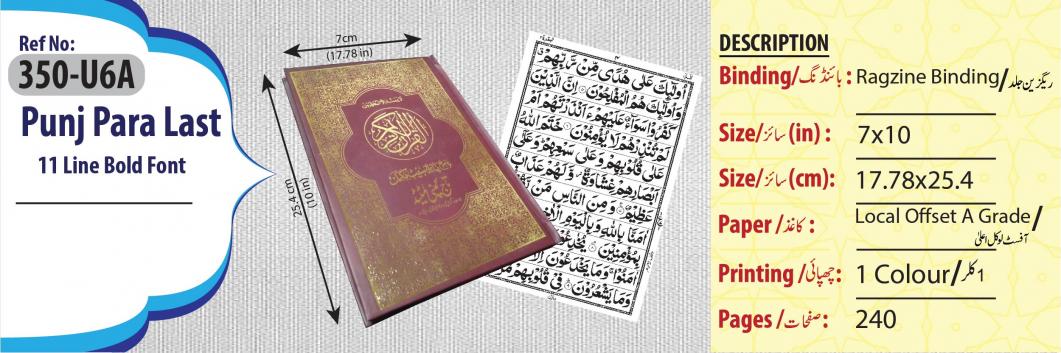 Ref No:
350-U6A
Punj Para Last
11 Line Bold Font
7cm
(17.78 in)
25.4 cm
(10 in)
القرآن الکریم
اُولٰٓئِكَ عَلٰى هُدًى مِّنْ رَّبِّهِمْ
وَاُولٰٓئِكَ هُمُ الْمُفْلِحُوْنَ اِنَّ الَّذِيْنَ
كَفَرُوْا سَوَآءٌ عَلَيْهِمْ ءَاَنْذَرْتَهُمْ اَمْ
لَمْ تُنْذِرْهُمْ لَا يُؤْمِنُوْنَ خَتَمَ اللّٰهُ
عَلٰى قُلُوْبِهِمْ وَعَلٰى سَمْعِهِمْ وَعَلٰٓى
اَبْصَارِهِمْ غِشَاوَةٌ وَّلَهُمْ عَذَابٌ
عَظِيْمٌ وَمِنَ النَّاسِ مَنْ
اٰمَنَّا بِاللّٰهِ وَبِالْيَوْمِ
بِمُؤْمِنِيْنَ يُخٰدِعُوْنَ
اٰمَنُوْا وَمَا يَخْدَعُوْنَ
وَمَا يَشْعُرُوْنَ فِيْ قُلُوْبِهِمْ
DESCRIPTION
Binding/بائنڈنگ : Ragzine Binding/ریگزین جلد
Size/سائز (in) : 7x10
Size/سائز (cm): 17.78x25.4
Paper /کاغذ : Local Offset A Grade/
آفسٹ لوکل اعلیٰ
Printing /چھپائی: 1 Colour/1 کلر
Pages /صفحات : 240